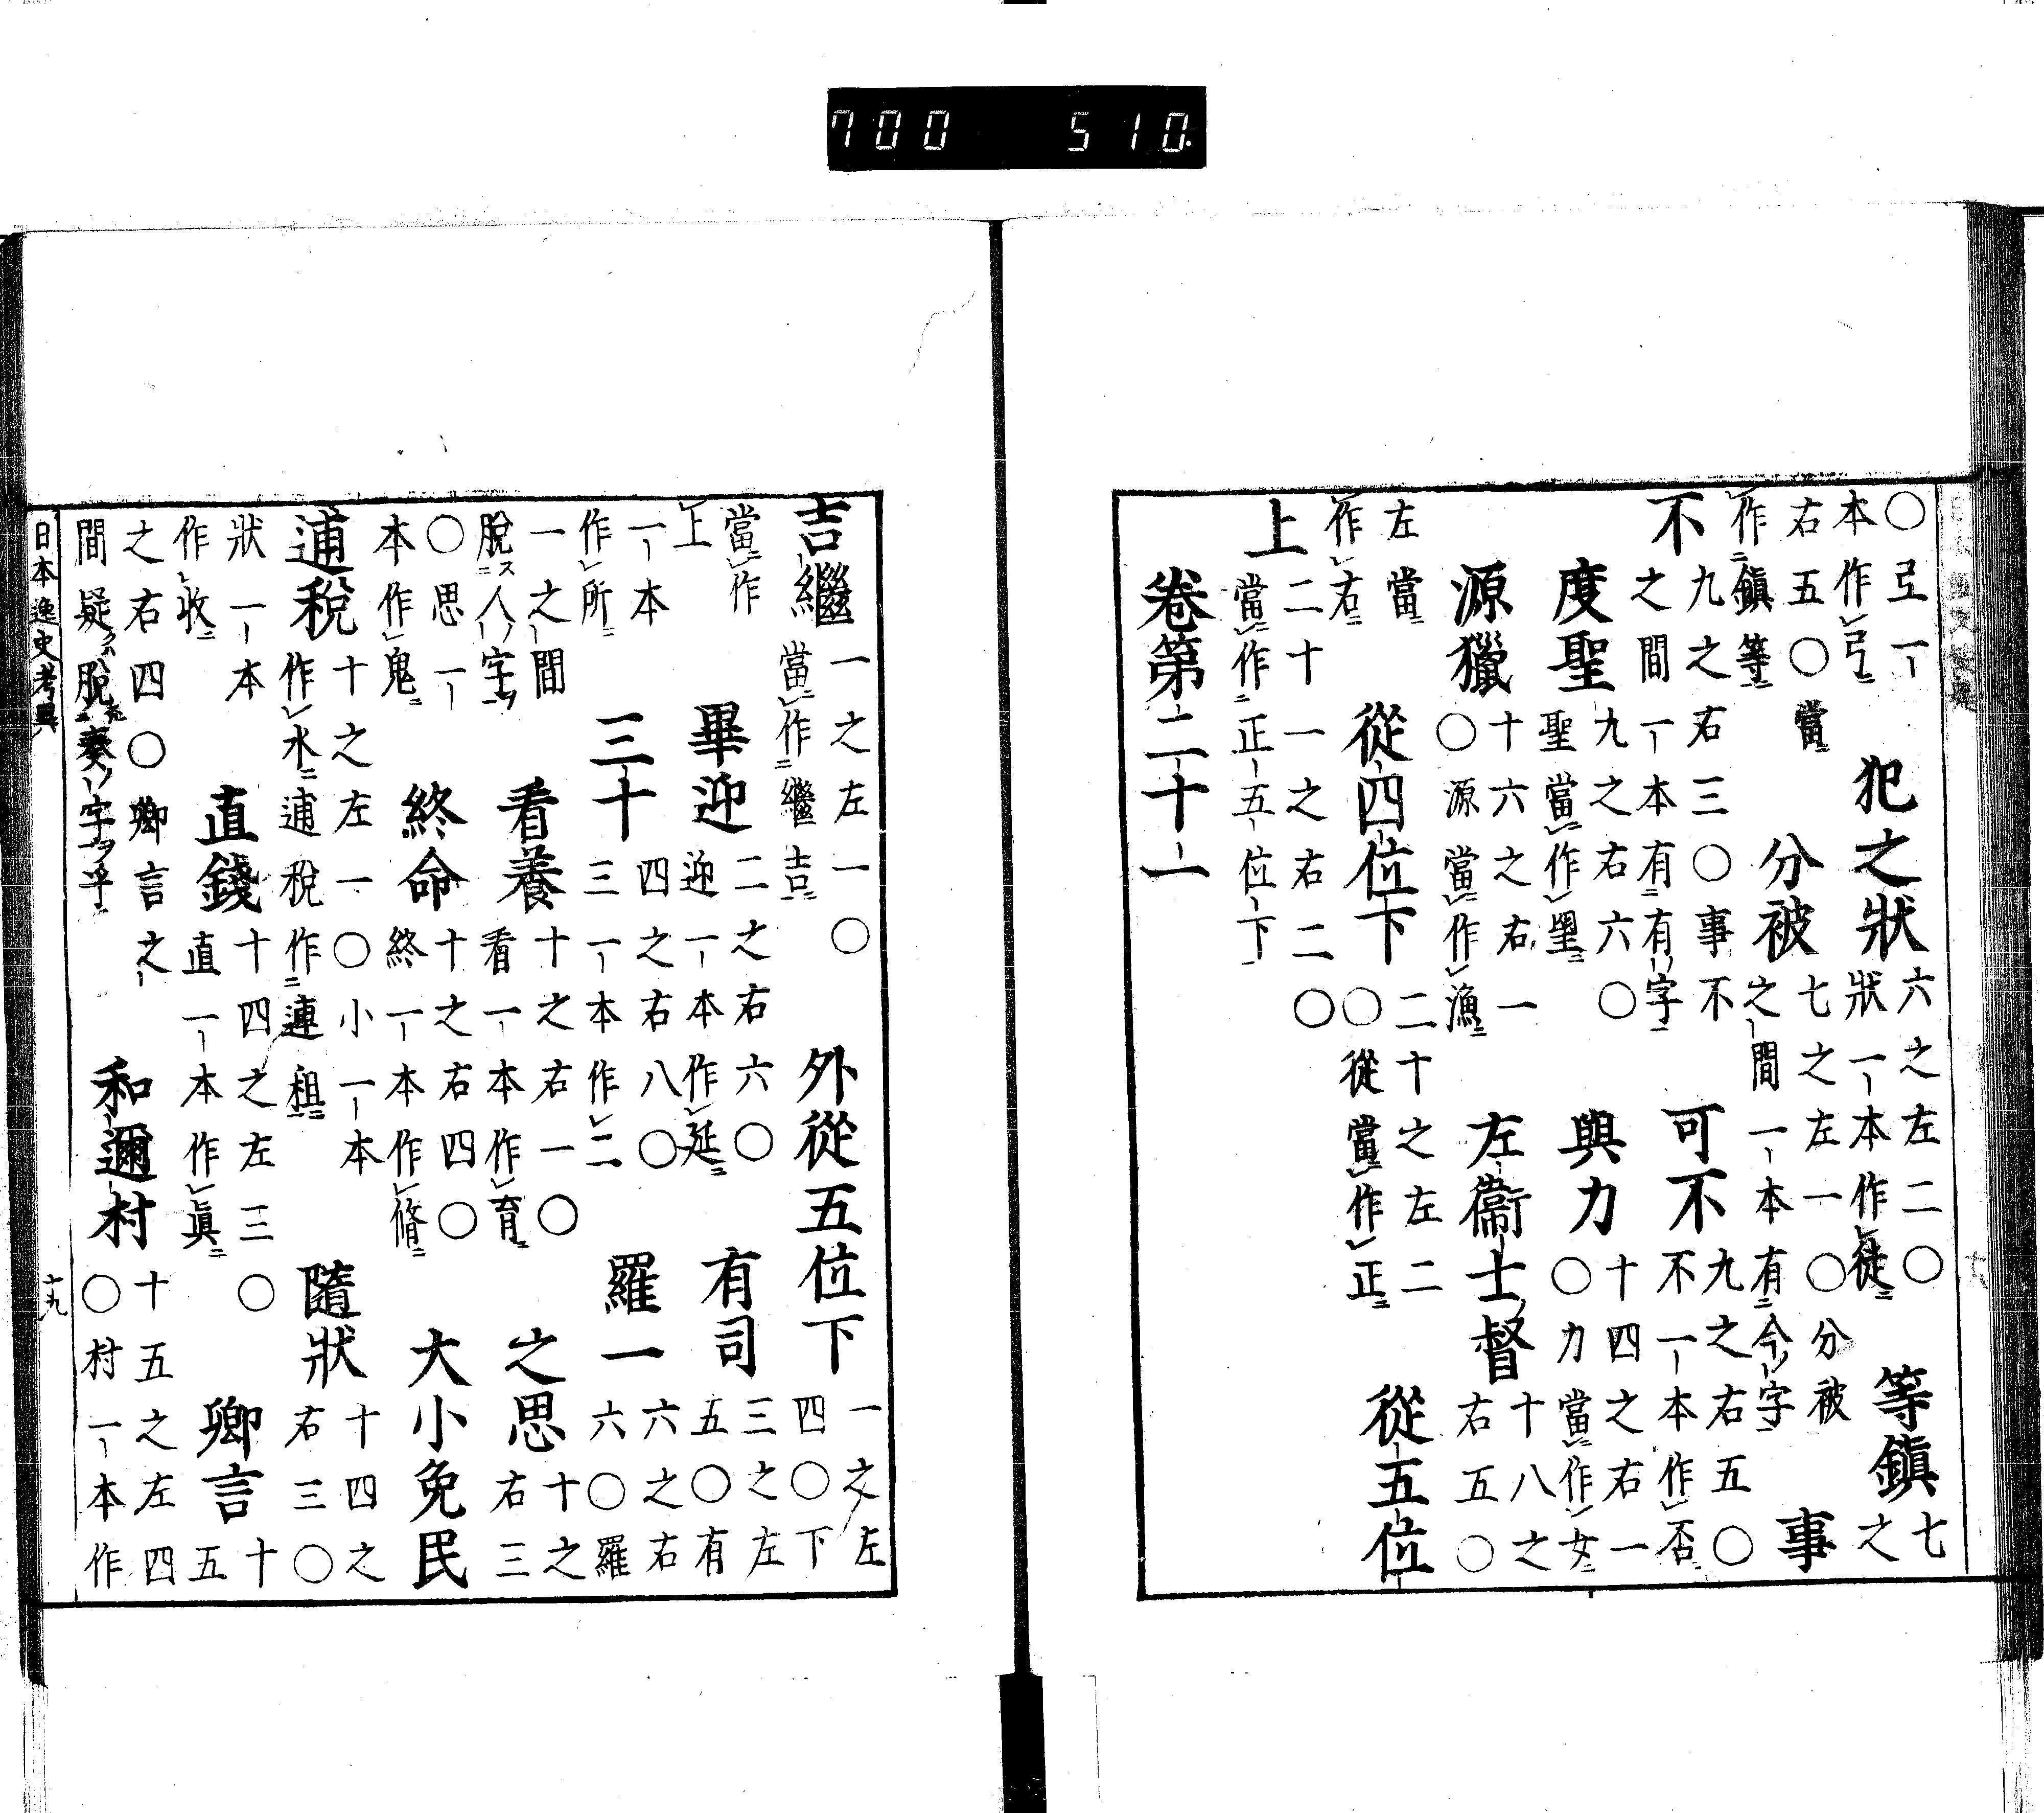 ○弖一本作弓 犯之狀 六之左二○狀一本作徒 等鎮 七之
右五○當作鎮等 分被 七之左一○分被之間一本有今字 事
不 九之右三○事不之間一本有有字 可不 九之右五○不一本作否
度聖 九之右六○聖當作壐 與力 十四之右一○力當作女
源獵 十六之右一○源當作漁 左衞士督 十八之右五○
左當作右 從四位下 二十之左二○從當作正 從五位
上 二十一之右二○當作正五位下
卷第二十一
吉繼 一之左一○當作繼吉 外從五位下 一之左四○下
當作上 畢迎 二之右六○迎一本作延 有司 三之左五○有
一本作所 三十 四之右八○三一本作二 羅一 六之右六○羅
一之間脫人字 看養 十之右一○看一本作育 之思 十之右三
○思一本作鬼 終命 十之右四○終一本作脩 大小免民
逋稅 十之左一○小一本作水逋稅作連租 隨狀 十四之右三○
狀一本作收 直錢 十四之左三○直一本作眞 卿言 十五
之右四○卿言之間疑脫奏字乎 和邇村 十五之左四○村一本作
日本逸史考異 十九
700 510.